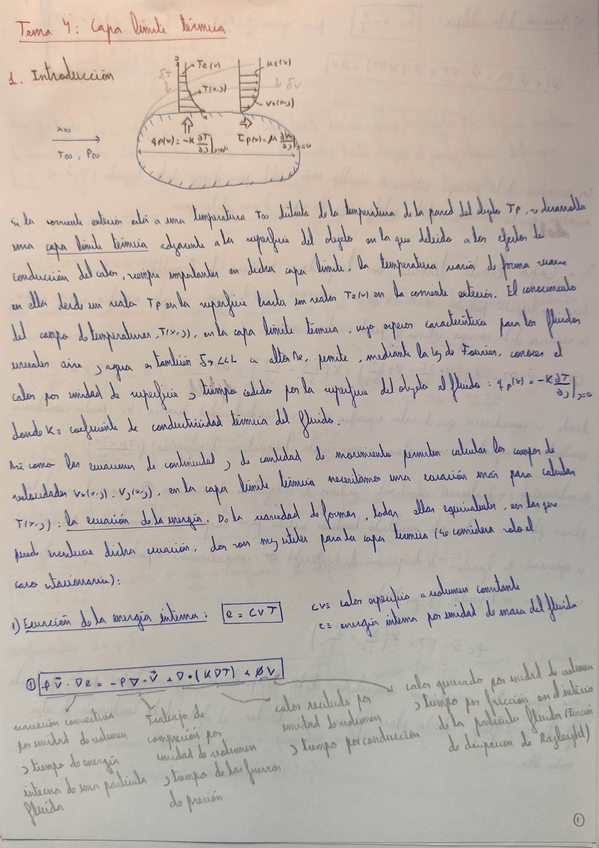 Tema 4: Capa límite térmica
1. Introducción
δT
Te(x)
T(x,y)
ue(x)
δv
vx(x,y)
u∞
T∞, P∞
qp(x) = -K ∂T/∂y|y=0
τp(x) = μ ∂vx/∂y|y=0
Si la corriente exterior está a una temperatura T∞ distinta de la temperatura de la pared del objeto Tp, se desarrolla
una capa límite térmica adyacente a la superficie del objeto en la que debido a los efectos de
conducción del calor, siempre importantes en dicha capa límite, la temperatura varía de forma suave
en ella desde un valor Tp en la superficie hasta un valor Te(x) en la corriente exterior. El conocimiento
del campo de temperaturas, T(x,y), en la capa límite térmica, cuyo espesor característico para los fluidos
usuales aire y agua es también δT <<L a altos Re, permite, mediante la ley de Fourier, conocer el
calor por unidad de superficie y tiempo cedido por la superficie del objeto al fluido: qp(x) = -K ∂T/∂y|y=0
donde K = coeficiente de conductividad térmica del fluido.
Así como las ecuaciones de continuidad y de cantidad de movimiento permiten calcular los campos de
velocidades vx(x,y), vy(x,y), en la capa límite térmica necesitamos una ecuación más para calcular
T(x,y): la ecuación de la energía. De la variedad de formas, todas ellas equivalentes, en las que
puede escribirse dicha ecuación, dos son muy útiles para la capa térmica (se considera solo el
caso estacionario):
1) Ecuación de la energía interna: e = cvT
cv = calor específico a volumen constante
e = energía interna por unidad de masa del fluido
① ρv̄·∇e = -p∇·v̄ + ∇·(K∇T) + φv
variación convectiva
por unidad de volumen
y tiempo de energía
interna de una partícula
fluida
Trabajo de
compresión por
unidad de volumen
y tiempo de las fuerzas
de presión
calor recibido por
unidad de volumen
y tiempo por conducción
calor generado por unidad de volumen
y tiempo por fricción en el interior
de la partícula fluida (Función
de disipación de Rayleigh)
1